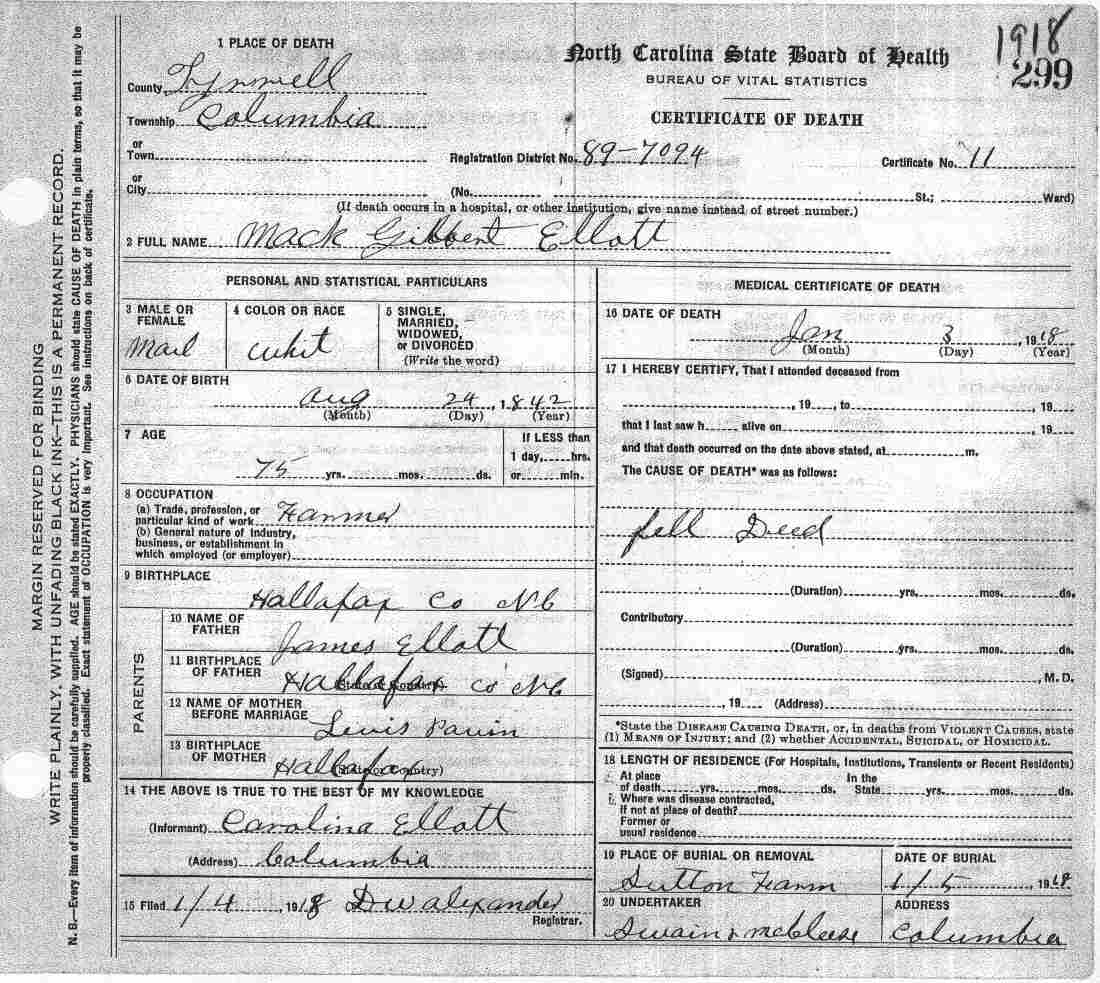 1918
299
North Carolina State Board of Health
BUREAU OF VITAL STATISTICS
CERTIFICATE OF DEATH
1 PLACE OF DEATH
County Tyrrell
Township Columbia
or
Town
Registration District No. 89-7094 Certificate No. 11
or
City (No. St.; Ward)
(If death occurs in a hospital, or other institution, give name instead of street number.)
2 FULL NAME Mack Gibbert Ellott
PERSONAL AND STATISTICAL PARTICULARS
3 MALE OR FEMALE
Mail
4 COLOR OR RACE
whit
5 SINGLE,
MARRIED,
WIDOWED,
or DIVORCED
(Write the word)
6 DATE OF BIRTH
Aug 24, 1842
(Month) (Day) (Year)
7 AGE
If LESS than
1 day, hrs.
or min.
75 yrs. mos. ds.
8 OCCUPATION
(a) Trade, profession, or
particular kind of work Farmer
(b) General nature of industry,
business, or establishment in
which employed (or employer)
9 BIRTHPLACE
Hallafax Co NC
PARENTS
10 NAME OF
FATHER
James Ellott
11 BIRTHPLACE
OF FATHER
(State or Country)
Hallafax Co NC
12 NAME OF MOTHER
BEFORE MARRIAGE
Levis
13 BIRTHPLACE
OF MOTHER
(State or Country)
Hallafax
14 THE ABOVE IS TRUE TO THE BEST OF MY KNOWLEDGE
(Informant) Carolina Ellott
(Address) Columbia
15 Filed 1/4, 1918 D W Alexander
Registrar.
MEDICAL CERTIFICATE OF DEATH
16 DATE OF DEATH
Jan 3, 1918
(Month) (Day) (Year)
17 I HEREBY CERTIFY, That I attended deceased from
, 19 , to , 19
that I last saw h alive on , 19
and that death occurred on the date above stated, at m.
The CAUSE OF DEATH* was as follows:
fell Deed
(Duration) yrs. mos. ds.
Contributory
(Duration) yrs. mos. ds.
(Signed) , M. D.
, 19 (Address)
*State the DISEASE CAUSING DEATH, or, in deaths from VIOLENT CAUSES, state
(1) MEANS OF INJURY; and (2) whether ACCIDENTAL, SUICIDAL, or HOMICIDAL.
18 LENGTH OF RESIDENCE (For Hospitals, Institutions, Transients or Recent Residents)
At place In the
of death yrs. mos. ds. State yrs. mos. ds.
Where was disease contracted,
If not at place of death?
Former or
usual residence
19 PLACE OF BURIAL OR REMOVAL
Sutton Farm
DATE OF BURIAL
1/5, 1918
20 UNDERTAKER
Swain & McCleese
ADDRESS
Columbia
MARGIN RESERVED FOR BINDING
WRITE PLAINLY, WITH UNFADING BLACK INK—THIS IS A PERMANENT RECORD.
N. B.—Every item of information should be carefully supplied. AGE should be stated EXACTLY. PHYSICIANS should state CAUSE OF DEATH in plain terms, so that it may be
properly classified. Exact statement of OCCUPATION is very important. See instructions on back of certificate.